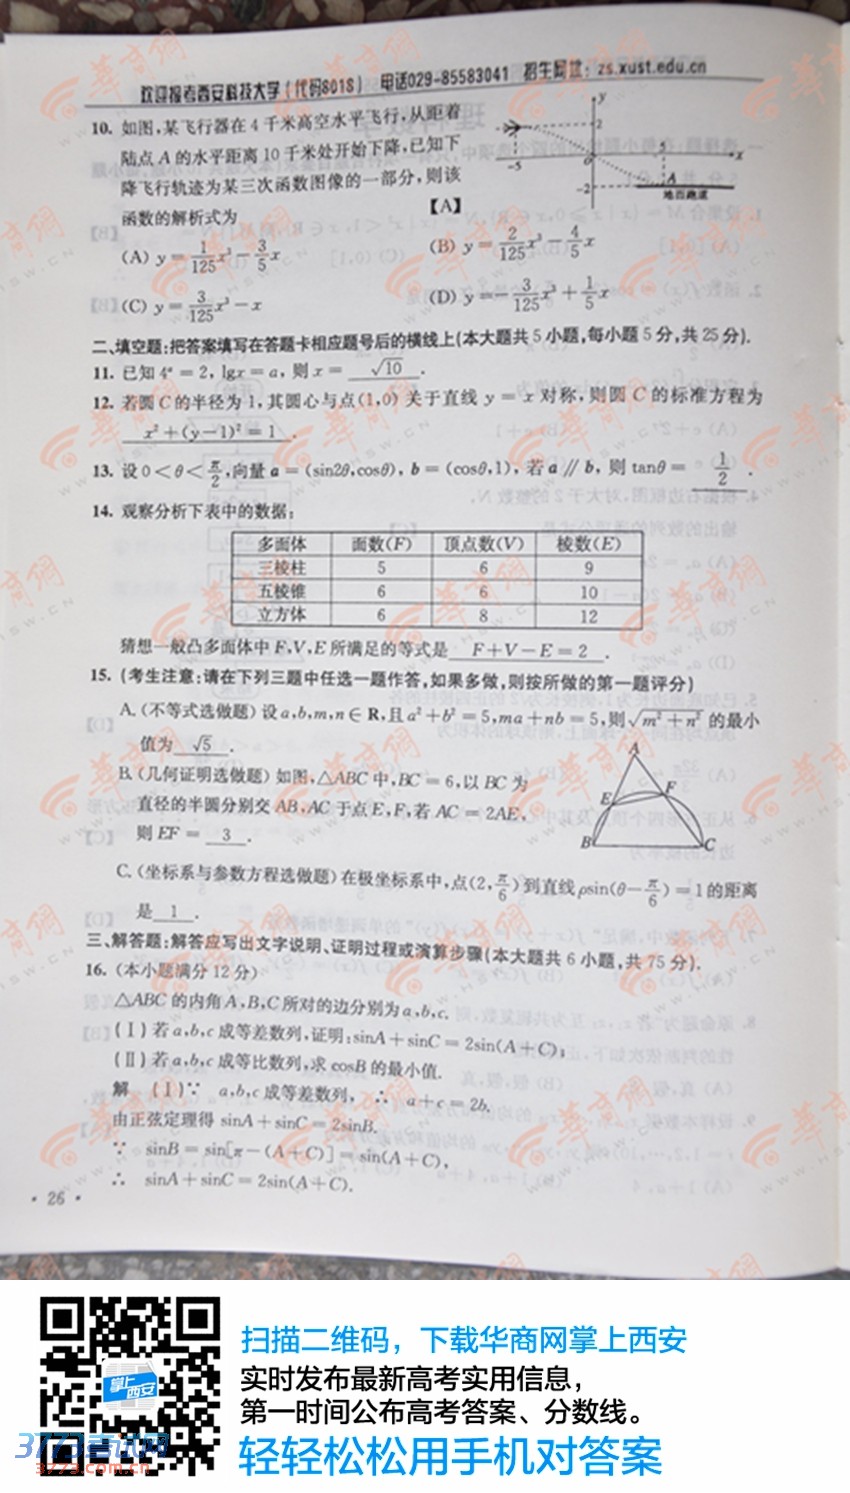 欢迎报考西安科技大学(代码8018) 电话029-85583041 招生网址:zs.xust.edu.cn
10. 如图,某飞行器在4千米高空水平飞行,从距着
陆点A的水平距离10千米处开始下降,已知下
降飞行轨迹为某三次函数图像的一部分,则该
函数的解析式为 【A】
y
2
-5
O
5
x
-2
A
地面跑道
(A) y=1/125x³-3/5x (B) y=2/125x³-4/5x
(C) y=3/125x³-x (D) y=-3/125x³+1/5x
二、填空题:把答案填写在答题卡相应题号后的横线上(本大题共5小题,每小题5分,共25分).
11. 已知4ᵃ=2, lgx=a, 则x= √10 .
12. 若圆C的半径为1,其圆心与点(1,0)关于直线y=x对称,则圆C的标准方程为
x²+(y-1)²=1 .
13. 设0<θ<π/2,向量a=(sin2θ,cosθ), b=(cosθ,1), 若a∥b, 则tanθ= 1/2 .
14. 观察分析下表中的数据:
多面体 面数(F) 顶点数(V) 棱数(E)
三棱柱 5 6 9
五棱锥 6 6 10
立方体 6 8 12
猜想一般凸多面体中F,V,E所满足的等式是 F+V-E=2 .
15. (考生注意:请在下列三题中任选一题作答,如果多做,则按所做的第一题评分)
A. (不等式选做题)设a,b,m,n∈R,且a²+b²=5,ma+nb=5,则√m²+n²的最小
值为 √5 .
B. (几何证明选做题)如图,△ABC中,BC=6,以BC为
直径的半圆分别交AB,AC于点E,F,若AC=2AE,
则EF= 3 .
A
E
F
B
C
C. (坐标系与参数方程选做题)在极坐标系中,点(2,π/6)到直线ρsin(θ-π/6)=1的距离
是 1 .
三、解答题:解答应写出文字说明、证明过程或演算步骤(本大题共6小题,共75分).
16. (本小题满分12分)
△ABC的内角A,B,C所对的边分别为a,b,c.
(Ⅰ)若a,b,c成等差数列,证明:sinA+sinC=2sin(A+C);
(Ⅱ)若a,b,c成等比数列,求cosB的最小值.
解 (Ⅰ)∵ a,b,c成等差数列, ∴ a+c=2b.
由正弦定理得 sinA+sinC=2sinB.
∵ sinB=sin[π-(A+C)]=sin(A+C),
∴ sinA+sinC=2sin(A+C).
· 26 ·
扫描二维码,下载华商网掌上西安
实时发布最新高考实用信息,
第一时间公布高考答案、分数线。
轻轻松松用手机对答案
掌上
西安
3773考试网
3773.com.cn